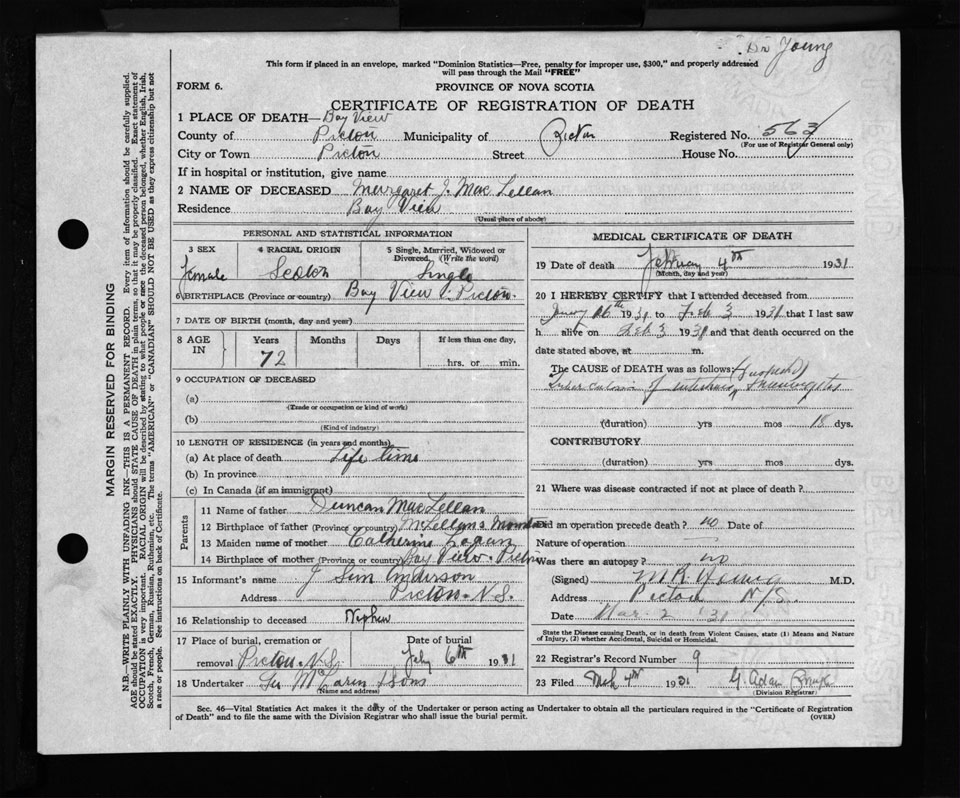 Dr Young
This form if placed in an envelope, marked "Dominion Statistics—Free, penalty for improper use, $300," and properly addressed
will pass through the Mail "FREE"
FORM 6.
PROVINCE OF NOVA SCOTIA
CERTIFICATE OF REGISTRATION OF DEATH
1 PLACE OF DEATH— Bay View
County of Pictou Municipality of Pictou Registered No. 563
(For use of Registrar General only)
City or Town Pictou Street House No.
If in hospital or institution, give name
2 NAME OF DECEASED Margaret J. MacLellan
Residence Bay View
(Usual place of abode)
PERSONAL AND STATISTICAL INFORMATION
3 SEX 4 RACIAL ORIGIN 5 Single, Married, Widowed or Divorced. (Write the word)
female Scotch Single
6 BIRTHPLACE (Province or country) Bay View Pictou.
7 DATE OF BIRTH (month, day and year)
8 AGE IN Years Months Days If less than one day,
72 hrs. or min.
9 OCCUPATION OF DECEASED
(a)
(Trade or occupation or kind of work)
(b)
(Kind of industry)
10 LENGTH OF RESIDENCE (in years and months)
(a) At place of death Life time
(b) In province
(c) In Canada (if an immigrant)
Parents
11 Name of father Duncan MacLellan
12 Birthplace of father (Province or country) McLellans Mountain
13 Maiden name of mother Catherine Logan
14 Birthplace of mother (Province or country) Bay View. Pictou
15 Informant's name J Sim Anderson
Address Pictou. N.S.
16 Relationship to deceased Nephew
17 Place of burial, cremation or Date of burial
removal Pictou N.S. Feby 6th 1931
18 Undertaker Geo McLaren & Sons
(Name and address)
MEDICAL CERTIFICATE OF DEATH
19 Date of death February 4th 1931
(Month, day and year)
20 I HEREBY CERTIFY that I attended deceased from
16th 1931 to Feb 3 1931 that I last saw
h alive on Feb 3 1931 and that death occurred on
date stated above, at m.
The CAUSE OF DEATH was as follows:
Tuberculosis of intestines
(duration) yrs mos 18 dys.
CONTRIBUTORY
(duration) yrs mos dys.
21 Where was disease contracted if not at place of death?
Did an operation precede death? no Date of
Nature of operation
Was there an autopsy? no
(Signed) M R Young M.D.
Address Pictou N/S.
Date Mar. 2 '31
State the Disease causing Death, or in death from Violent Causes, state (1) Means and Nature
of Injury, (2) whether Accidental, Suicidal or Homicidal.
22 Registrar's Record Number 9
23 Filed Mch 4th 1931 G. Adam
(Division Registrar)
Sec. 46—Vital Statistics Act makes it the duty of the Undertaker or person acting as Undertaker to obtain all the particulars required in the "Certificate of Registration
of Death" and to file the same with the Division Registrar who shall issue the burial permit.
(OVER)
MARGIN RESERVED FOR BINDING
N.B.—WRITE PLAINLY WITH UNFADING INK—THIS IS A PERMANENT RECORD. Every item of information should be carefully supplied.
AGE should be stated EXACTLY. PHYSICIANS should STATE CAUSE OF DEATH in plain terms, so that it may be properly classified. Exact statement of
OCCUPATION is very important. RACIAL ORIGIN will be described by stating to what people or race the deceased person belonged, whether English, Irish,
Scotch, French, German, Russian, Ruthenian, etc. The terms "AMERICAN" or "CANADIAN" SHOULD NOT BE USED as they express citizenship but not
a race or people. See instructions on back of Certificate.